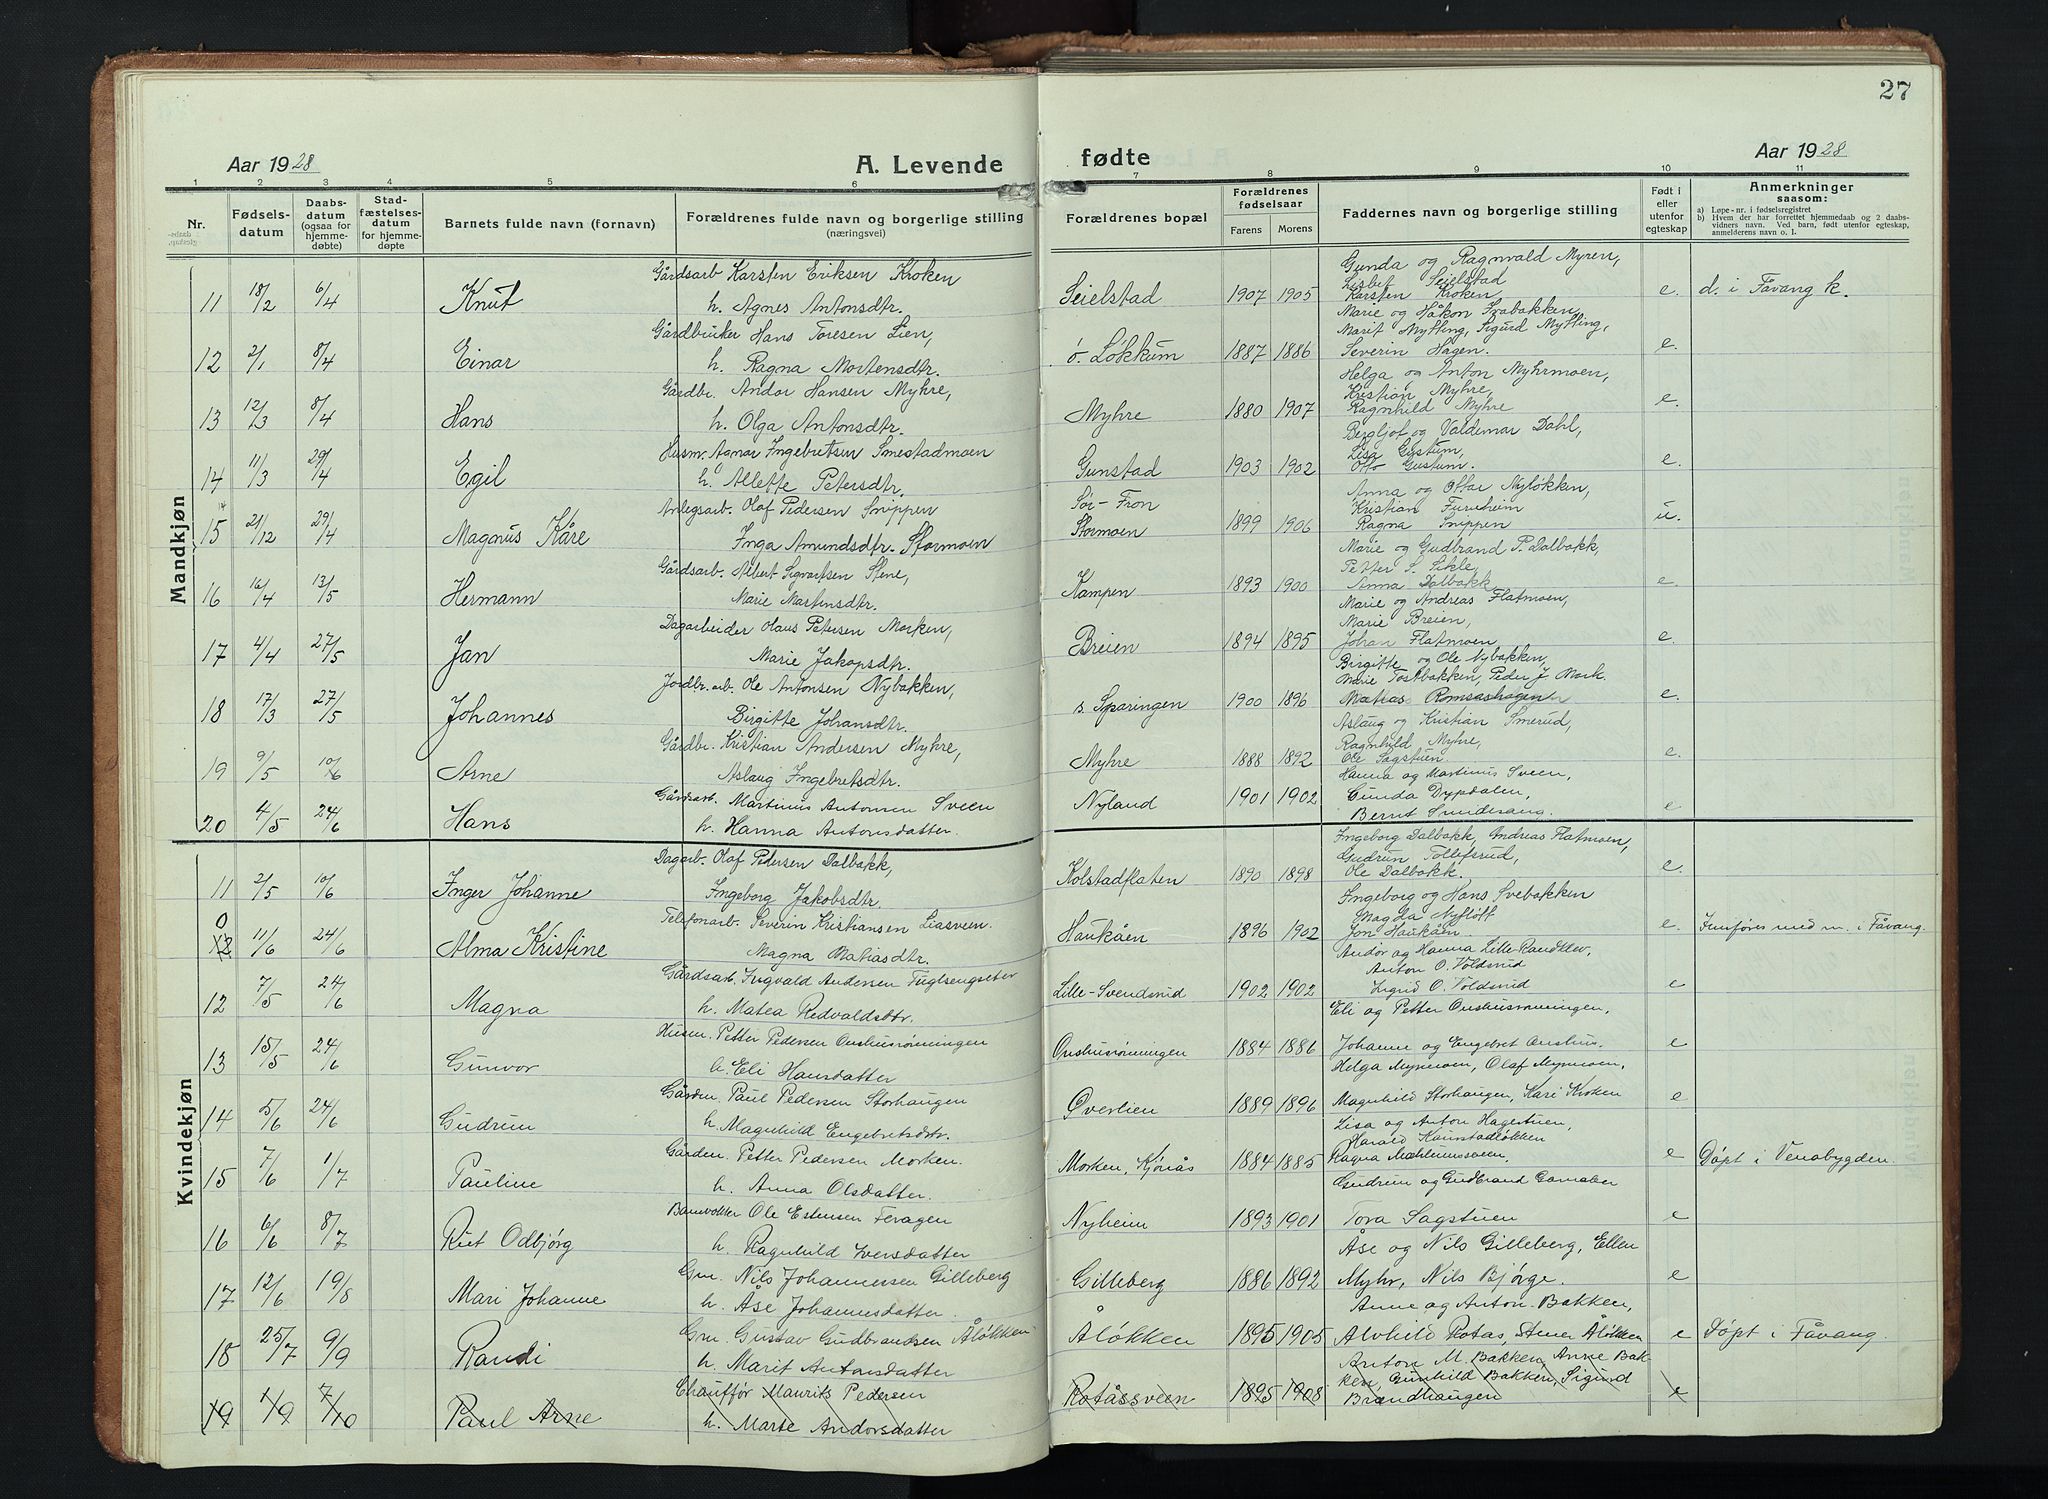 27
Aar 1928 A. Levende fødte Aar 1928
1 2 3 4 5 6 7 8 9 10 11
Nr. Fødsels-datum Daabs-datum (ogsaa for hjemme-døbte) Stad-fæstelses-datum for hjemme-døpte Barnets fulde navn (fornavn) Forældrenes fulde navn og borgerlige stilling (næringsvei) Forældrenes bopæl Forældrenes fødselsaar Farens Morens Faddernes navn og borgerlige stilling Født i eller utenfor egteskap Anmerkninger saasom:
a) Løpe-nr. i fødselsregistret
b) Hvem der har forrettet hjemmedaab og 2 daabs-vidners navn. Ved barn, født utenfor egteskap, anmelderens navn o. l.
Mandkjøn
11 18/2 6/4 Knut Gårdsarb Karsten Eriksen Kroken h. Agnes Antonsdtr. Seielstad 1907 1905 Gunda og Ragnvald Myren, Lisbet Seielstad Karsten Kroken, e. d. i Fåvang k.
12 2/1 8/4 Einar Gårdbruker Hans Toresen Lien, h. Ragna Mortensdtr. ö. Lökkum 1887 1886 Marie og Håkon Svabakken, Marit Mytting, Sigurd Mytting, Severin Hagen. e.
13 12/3 8/4 Hans Gårdbr. Andor Hansen Myhre, h. Olga Antonsdtr. Myhre 1880 1907 Helga og Anton Myhrmoen, Kristian Myhre, Ragnhild Myhre e.
14 11/3 29/4 Egil Husm. Agnar Ingebretsen Smestadmoen h. Allette Petersdtr. Gunstad 1903 1902 Bergljot og Valdemar Dahl, Lisa Gustum, Otto Gustum. e.
15 21/12 29/4 Magnus Kåre Anlegsarb. Olaf Pedersen Snippen Inga Amundsdtr. Stormoen Sör-Fron Stormoen 1899 1906 Anna og Ottar Nylökken, Kristian Furuheim Ragna Snippen u.
16 16/4 13/5 Hermann Gårdsarb. Albert Sigvartsen Stene, Marie Martensdtr. Kampen 1893 1900 Marie og Gudbrand P. Dalbakk, Petter S. Sikle, Anna Dalbakk e.
17 4/4 27/5 Jan Dagarbeider Olaus Petersen Morken, Marie Jakopsdtr. Breien 1894 1895 Marie og Andreas Flatmoen, Marie Breien, Johan Flatmoen, e.
18 17/3 27/5 Johannes Jordbr.arb. Ole Antonsen Nybakken, Birgitte Johansdtr. s. Sparingen 1900 1896 Birgitte og Ole Nybakken, Marie Tostbakken, Peder J. Mork. Matias Romsashagen e.
19 9/5 10/6 Arne Gårdbr. Kristian Andersen Myhre, Aslaug Ingebretsdtr. Myhre 1888 1892 Aslaug og Kristian Smerud, Ragnhild Myhre, Ole Sagstuen. e
20 4/5 24/6 Hans Gårdsarb. Martinus Antonsen Sveen h. Hanna Antonsdatter. Nyland 1901 1902 Hanna og Martinus Sveen, Gunda Dypdalen, Bernt Sundesang. e
Kvindekjøn
11 2/5 10/6 Inger Johanne Dagarb. Olaf Petersen Dalbakk, Ingeborg Jakobsdtr. Kolstadflaten 1890 1898 Ingeborg Dalbakk, Andreas Flatmoen, Gudrun Tollefsrud, Ole Dalbakk. e.
0 12 11/6 24/6 Alma Kristine Telefonarb. Severin Kristiansen Liasveen. Magna Matiasdtr. Haukåen 1896 1902 Ingeborg og Hans Svebakken Magda Nyflött Jon Haukåen e. Innføres med nr. i Fåvang.
12 7/5 24/6 Magna Gårdsarb. Ingvald Andersen Fuglsengseter h. Matea Redvaldsdtr. Lille-Svendsrud 1902 1902 Andor og Hanna Lille-Randklev, Anton O. Voldsrud Ingrid O. Voldsrud e
13 15/5 24/6 Gunvor Husm. Petter Pedersen Onshusrönningen h. Eli Hansdatter Onshusrönningen 1884 1886 Eli og Petter Onshusrönningen, Johanne og Engebret Onshus. e
14 5/6 24/6 Gudrun Gårdm. Paul Pedersen Storhaugen h. Magnhild Engebretsdtr. Överlien 1889 1896 Helga Myrmoen, Olaf Myrmoen, Magnhild Storhaugen, Kari Kroken e
15 7/6 1/7 Pauline Gårdm. Petter Pedersen Morken. h. Anna Olsdatter. Morken, Kjönås 1884 1885 Lisa og Anton Hagestuen, Harald Kaunstadlökken Ragna Mæhlumsveen, e Döpt i Venabygden.
16 6/6 8/7 Rut Odbjörg Banevokter Ole Estensen Feragen h. Ragnhild Iversdatter Nyheim 1893 1901 Gudrun og Gudbrand Tora Sagstuen e
17 12/6 19/8 Mari Johanne Gm. Nils Johannessen Gilleberg h. Åse Johannesdatter. Gilleberg 1886 1892 Åse og Nils Gilleberg, Ellen Myhr, Nils Bjørge. e
18 25/7 9/9 Randi Gm. Gustav Gudbrandsen Ålökken h. Marit Antonsdatter Ålökken 1895 1905 Anne og Anton Bakken, Alvhild Rotås, Steinar Ålökken e Döpt i Fåvang.
19 1/9 7/10 Paul Arne Chauffør Maurits Pedersen h. Marte Andorsdatter Rotåssveen 1895 1908 Anton M. Bakken, Anne Bakken, Gunhild Bakken, Sigurd Brandhaugen e